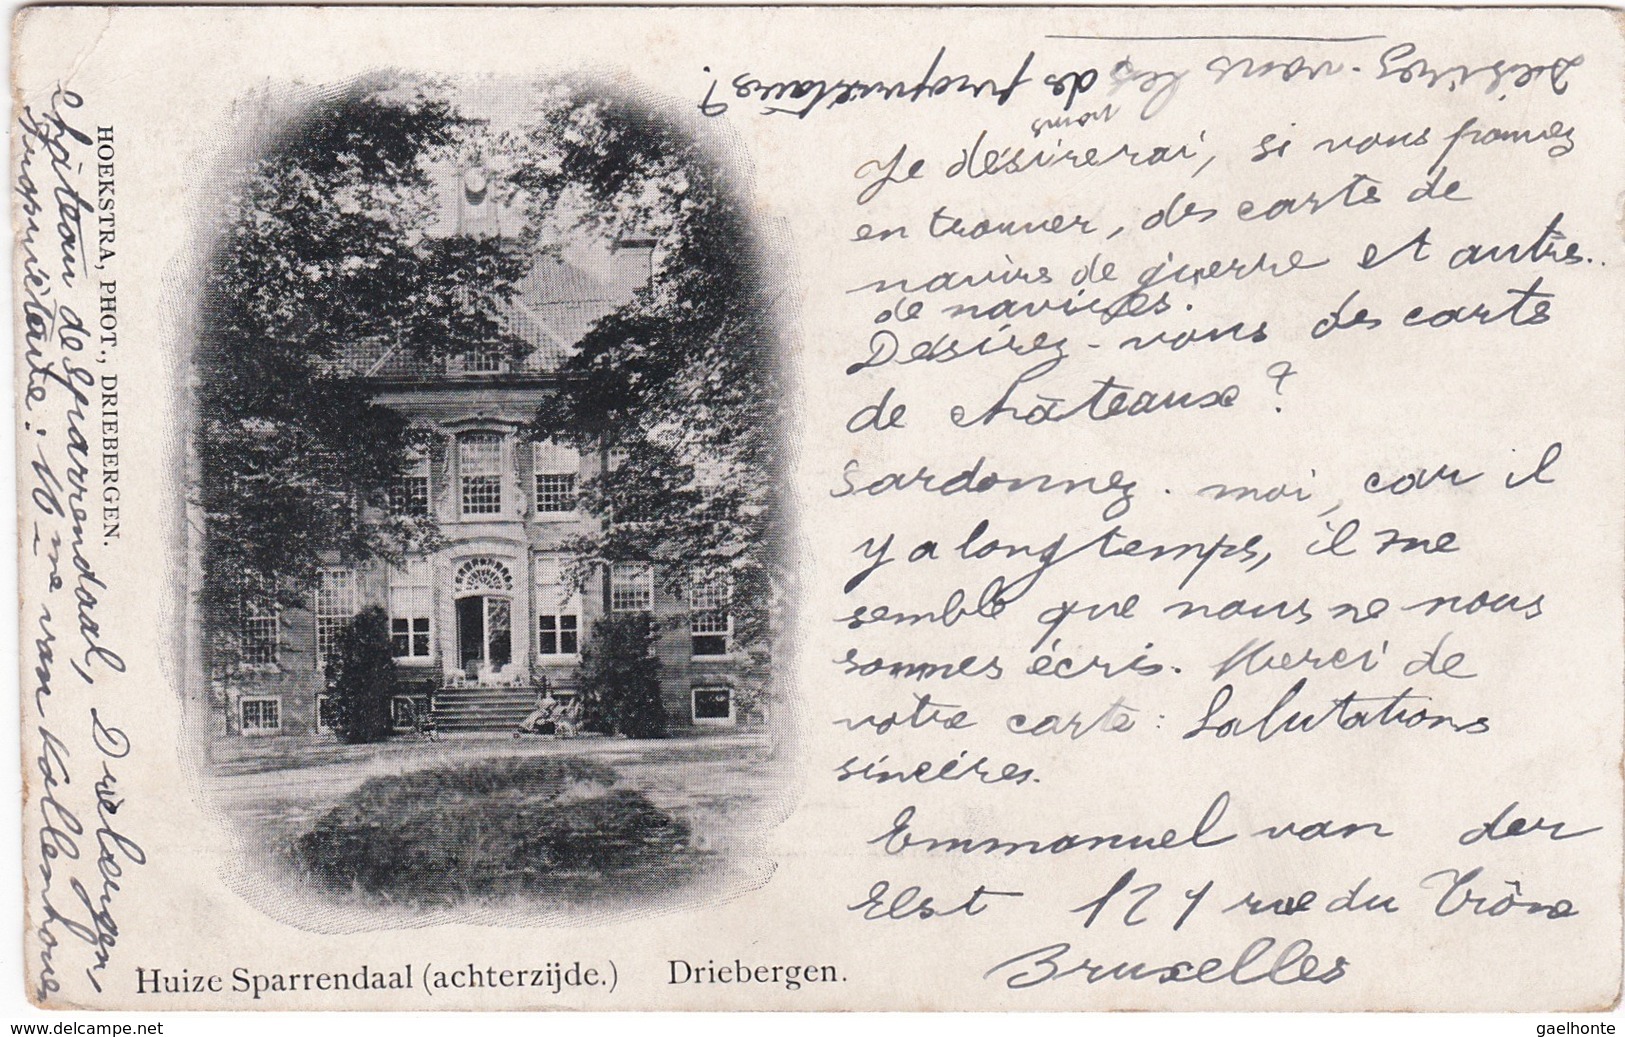 Désirez-vous les noms des propriétaires?
Je désirerai, si vous pouvez
en trouver, des carts de
navirs de guerre et autrs..
de navires.
Désirez-vous des carts
de châteaux?
Pardonnez-moi, car il
y a longtemps, il me
semble que nous ne nous
sommes écris. Merci de
votre carte: Salutations
sincères.
Emmanuel van der
Elst 121 rue du Trône
Bruxelles
Château de Sparrendaal, Driebergen,
propriétaire: Mme van Kallenhoven
HOEKSTRA, PHOT., DRIEBERGEN.
Huize Sparrendaal (achterzijde.) Driebergen.
www.delcampe.net
gaelhonte